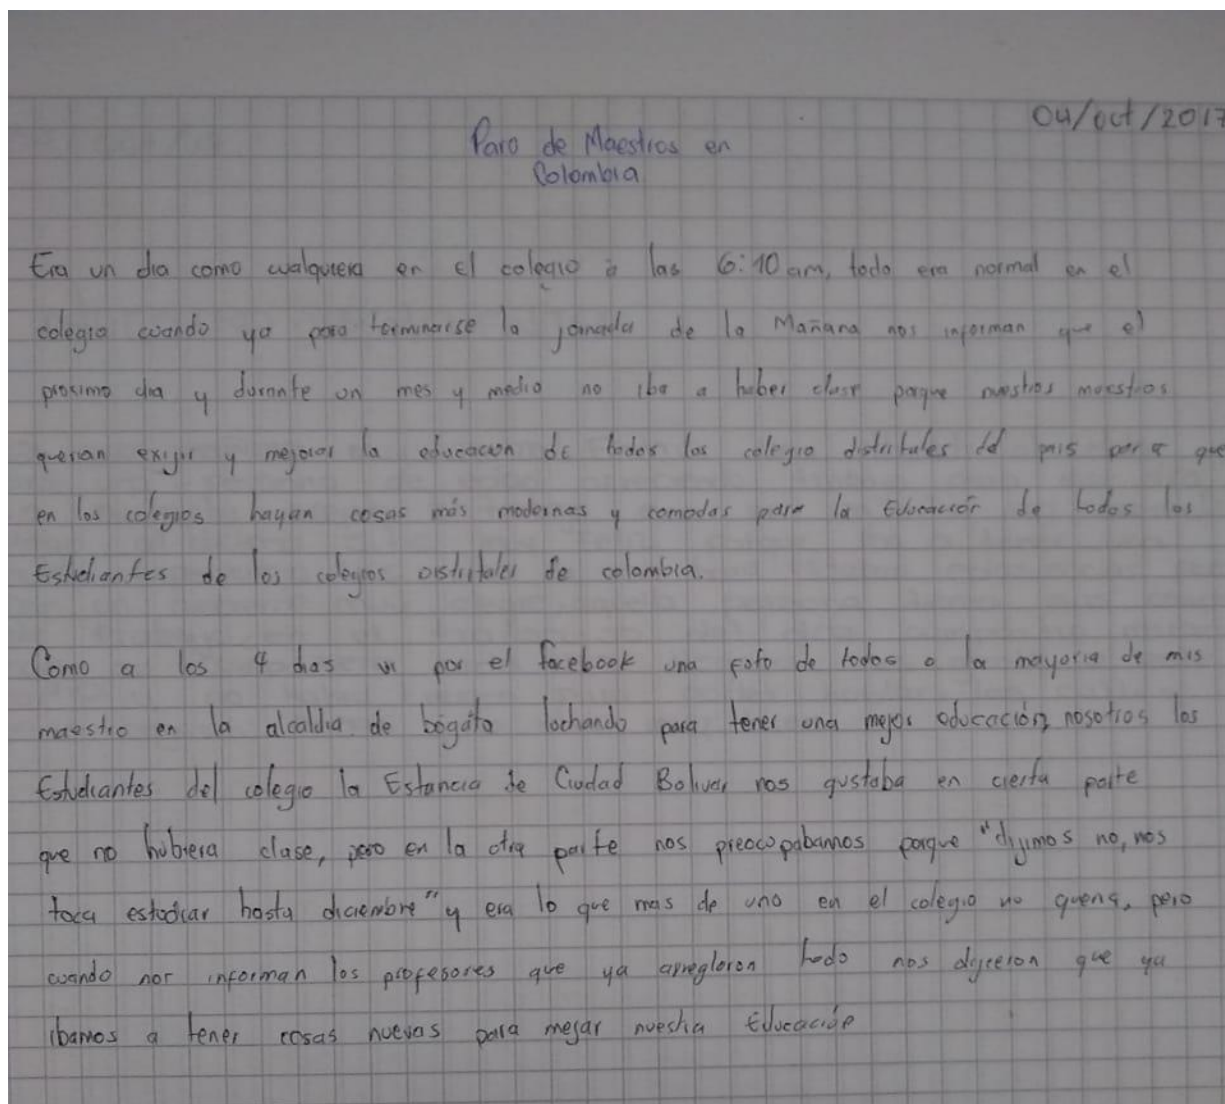 04/oct/2017
Paro de Maestros en
Colombia
Era un dia como cualquiera en el colegio a las 6:10 am, todo era normal en el
colegio cuando ya para terminarse la jornada de la Mañana nos informan que el
proximo dia y durante un mes y medio no iba a haber clase porque nuestros maestros
querian exigir y mejorar la educacion de todos los colegio distritales del pais para que
en los colegios hayan cosas más modernas y comodas para la Educación de todos los
Estudiantes de los colegios distritales de colombia.
Como a los 4 dias vi por el facebook una foto de todos o la mayoria de mis
maestro en la alcaldia de bogota luchando para tener una mejor educación, nosotros los
Estudiantes del colegio la Estancia de Ciudad Bolivar nos gustaba en cierta parte
que no hubiera clase, pero en la otra parte nos preocupabamos porque "dijimos no, nos
toca estudiar hasta diciembre" y era lo que mas de uno en el colegio no queria, pero
cuando nor informan los profesores que ya arreglaron todo nos dijeron que ya
ibamos a tener cosas nuevas para mejar nuestra Educación